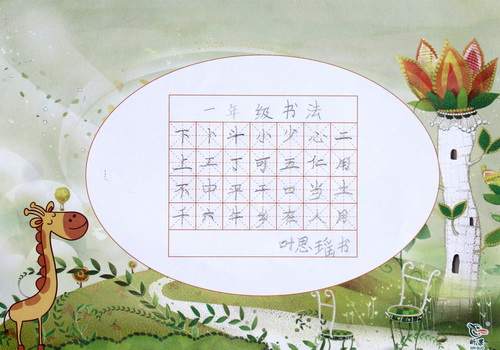 一年级书法
下卜斗小少心二
上工丁可五仁用
不中平干四当土
千六牛乡左人月
叶思瑶书